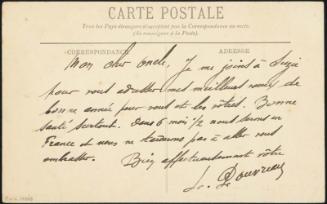 CARTE POSTALE
Tous les Pays étrangers n'acceptent pas la Correspondance au recto.
(Se renseigner à la Poste).
CORRESPONDANCE
ADRESSE
Mon cher oncle, Je me joins à Suzie
pour vous adresser mes meilleurs voeux de
bonne année pour vous et les vôtres. Bonne
santé surtout. Dans 6 mois 1/2 nous serons en
France et nous ne tarderons pas à aller vous
embrasser. Bien affectueusement vôtre